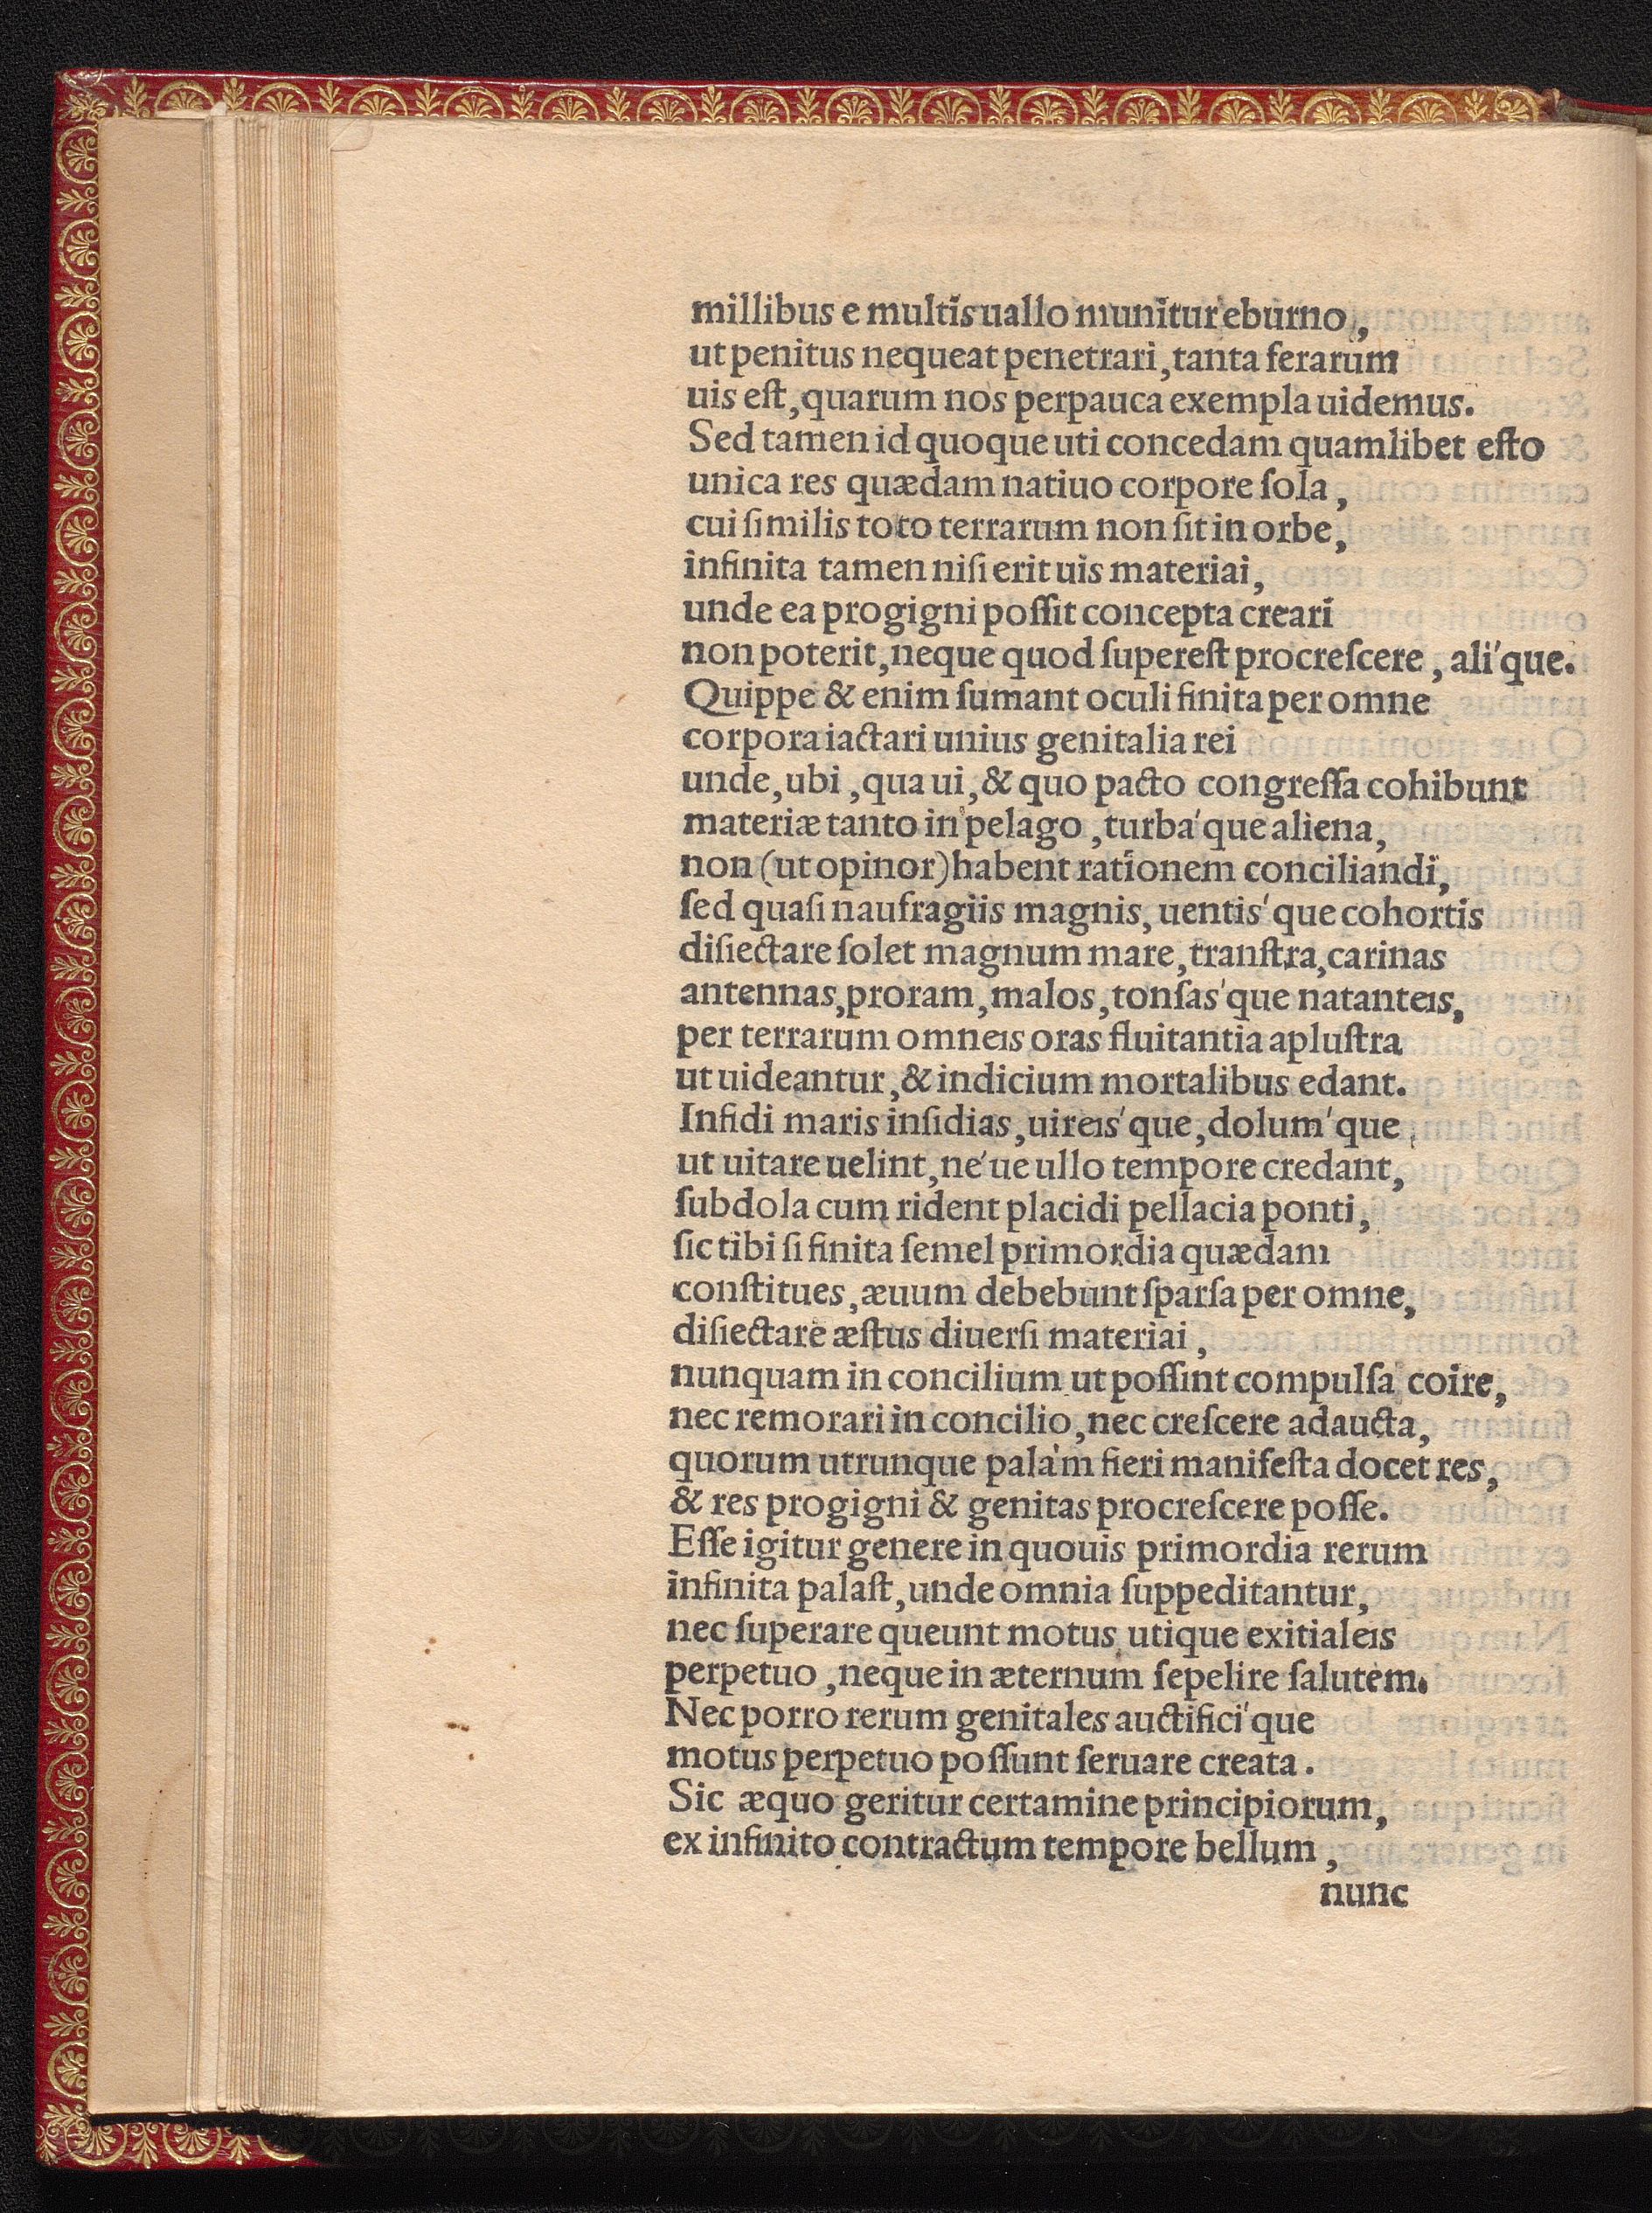 millibus e multis uallo munitur eburno,
ut penitus nequeat penetrari, tanta ferarum
uis eſt, quarum nos perpauca exempla uidemus.
Sed tamen id quoque uti concedam quamlibet eſto
unica res quædam natiuo corpore ſola,
cui ſimilis toto terrarum non ſit in orbe,
infinita tamen niſi erit uis materiai,
unde ea progigni poſſit concepta creari
non poterit, neque quod ſupereſt procreſcere, ali'que.
Quippe & enim ſumant oculi finita per omne
corpora iactari unius genitalia rei
unde, ubi, qua ui, & quo pacto congreſſa cohibunt
materiæ tanto in pelago, turba'que aliena,
non (ut opinor) habent rationem conciliandi,
ſed quaſi naufragiis magnis, uentis'que cohortis
diſiectare ſolet magnum mare, tranſtra, carinas
antennas, proram, malos, tonſas'que natanteis,
per terrarum omneis oras fluitantia apluſtra
ut uideantur, & indicium mortalibus edant.
Infidi maris inſidias, uireis'que, dolum'que
ut uitare uelint, ne'ue ullo tempore credant,
ſubdola cum rident placidi pellacia ponti,
ſic tibi ſi finita ſemel primordia quædam
conſtitues, æuum debebunt ſparſa per omne,
diſiectare æſtus diuerſi materiai,
nunquam in concilium ut poſſint compulſa coire,
nec remorari in concilio, nec creſcere adaucta,
quorum utrunque pala'm fieri manifeſta docet res,
& res progigni & genitas procreſcere poſſe.
Eſſe igitur genere in quouis primordia rerum
infinita palaſt, unde omnia ſuppeditantur,
nec ſuperare queunt motus utique exitialeis
perpetuo, neque in æternum ſepelire ſalutem.
Nec porro rerum genitales auctifici'que
motus perpetuo poſſunt ſeruare creata.
Sic æquo geritur certamine principiorum,
ex infinito contractum tempore bellum,
nunc